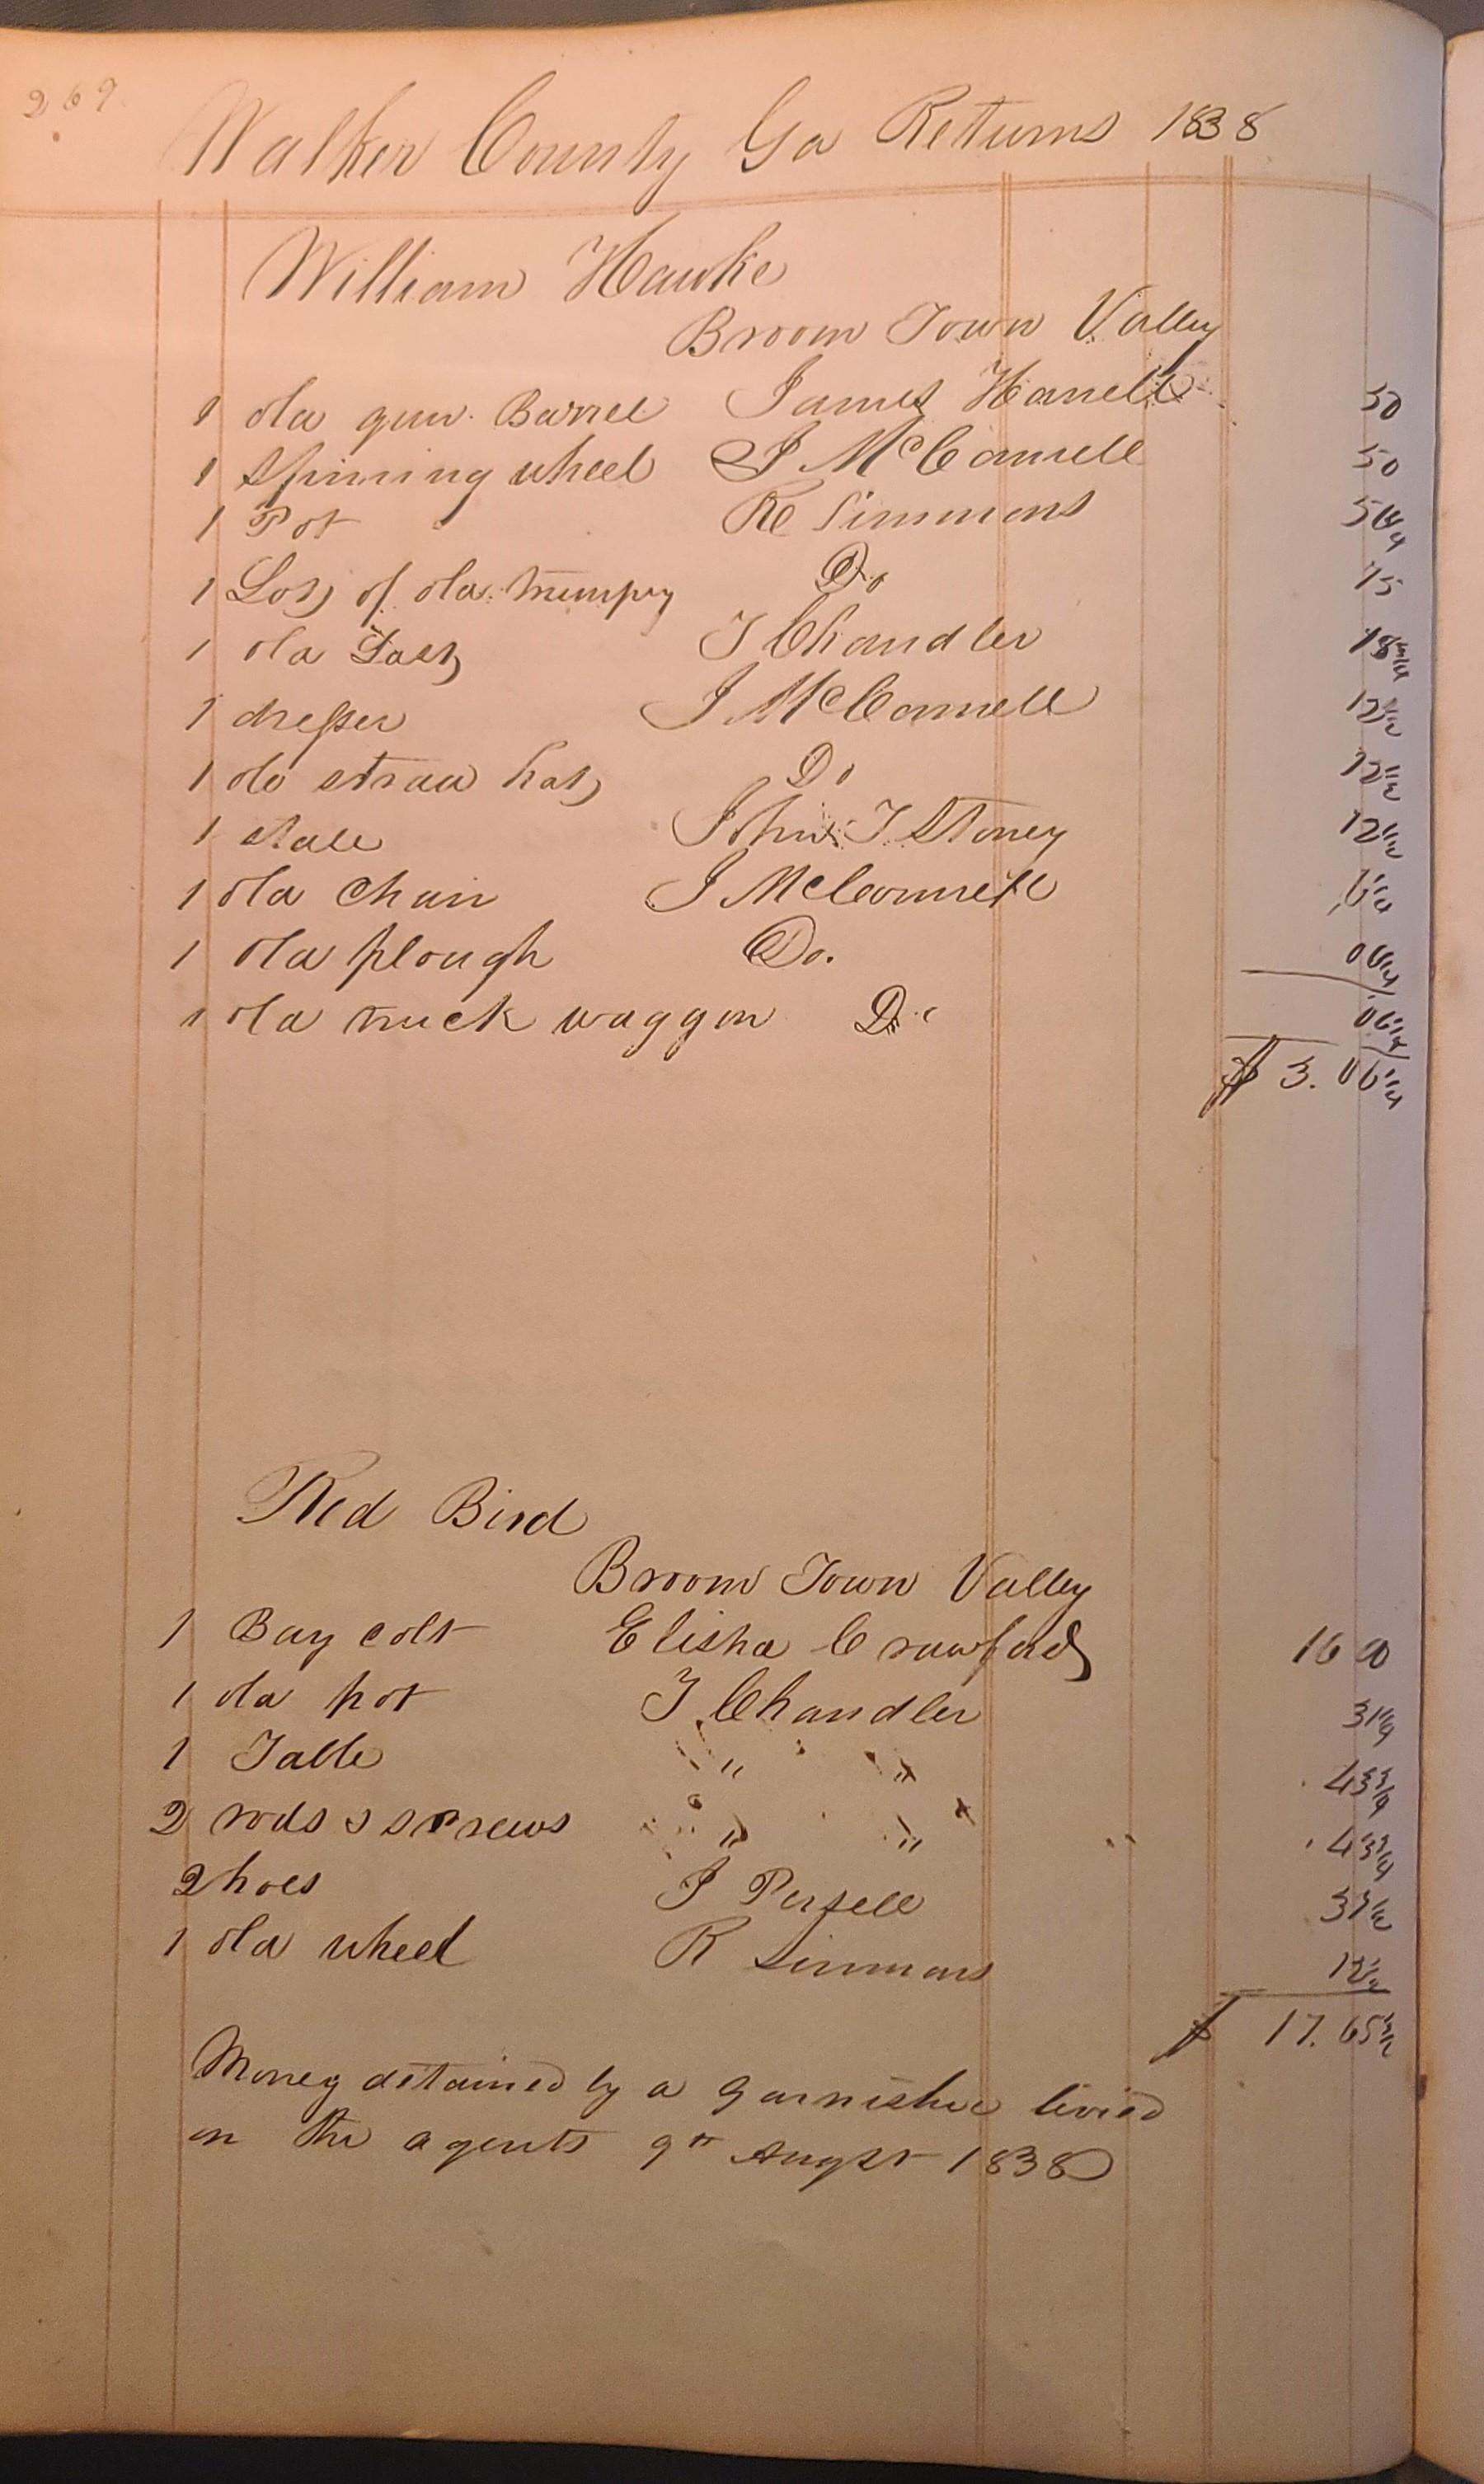 269
Walker County Ga Returns 1838
William Hawke
Broom Town Valley
1 old gun Barrel James Harrell 50
1 Spinning wheel J McConnell 50
1 Pot R Simmons 56 1/4
1 Lot of old trumpry Do 75
1 old T. Chandler 18 3/4
1 dresser J McConnell 12 1/2
1 do straw hat Do 12 1/2
1 John T Stoney 12 1/2
1 old Chair J McConnell 6 1/4
1 old plough Do. 06 1/4
1 old truck waggon Do 06 1/4
$ 3.06 1/4
Red Bird
Broom Town Valley
1 Bay colt Elisha Crawford 16 00
1 old pot T Chandler 31 1/4
1 Table " " 43 3/4
2 rods & screws " " 43 3/4
2 hoes J Persell 31 1/2
1 old wheel R Simmons 12 1/2
$ 17.65 1/2
Money detained by a garnishee levied
on the agents 9th Augst 1838